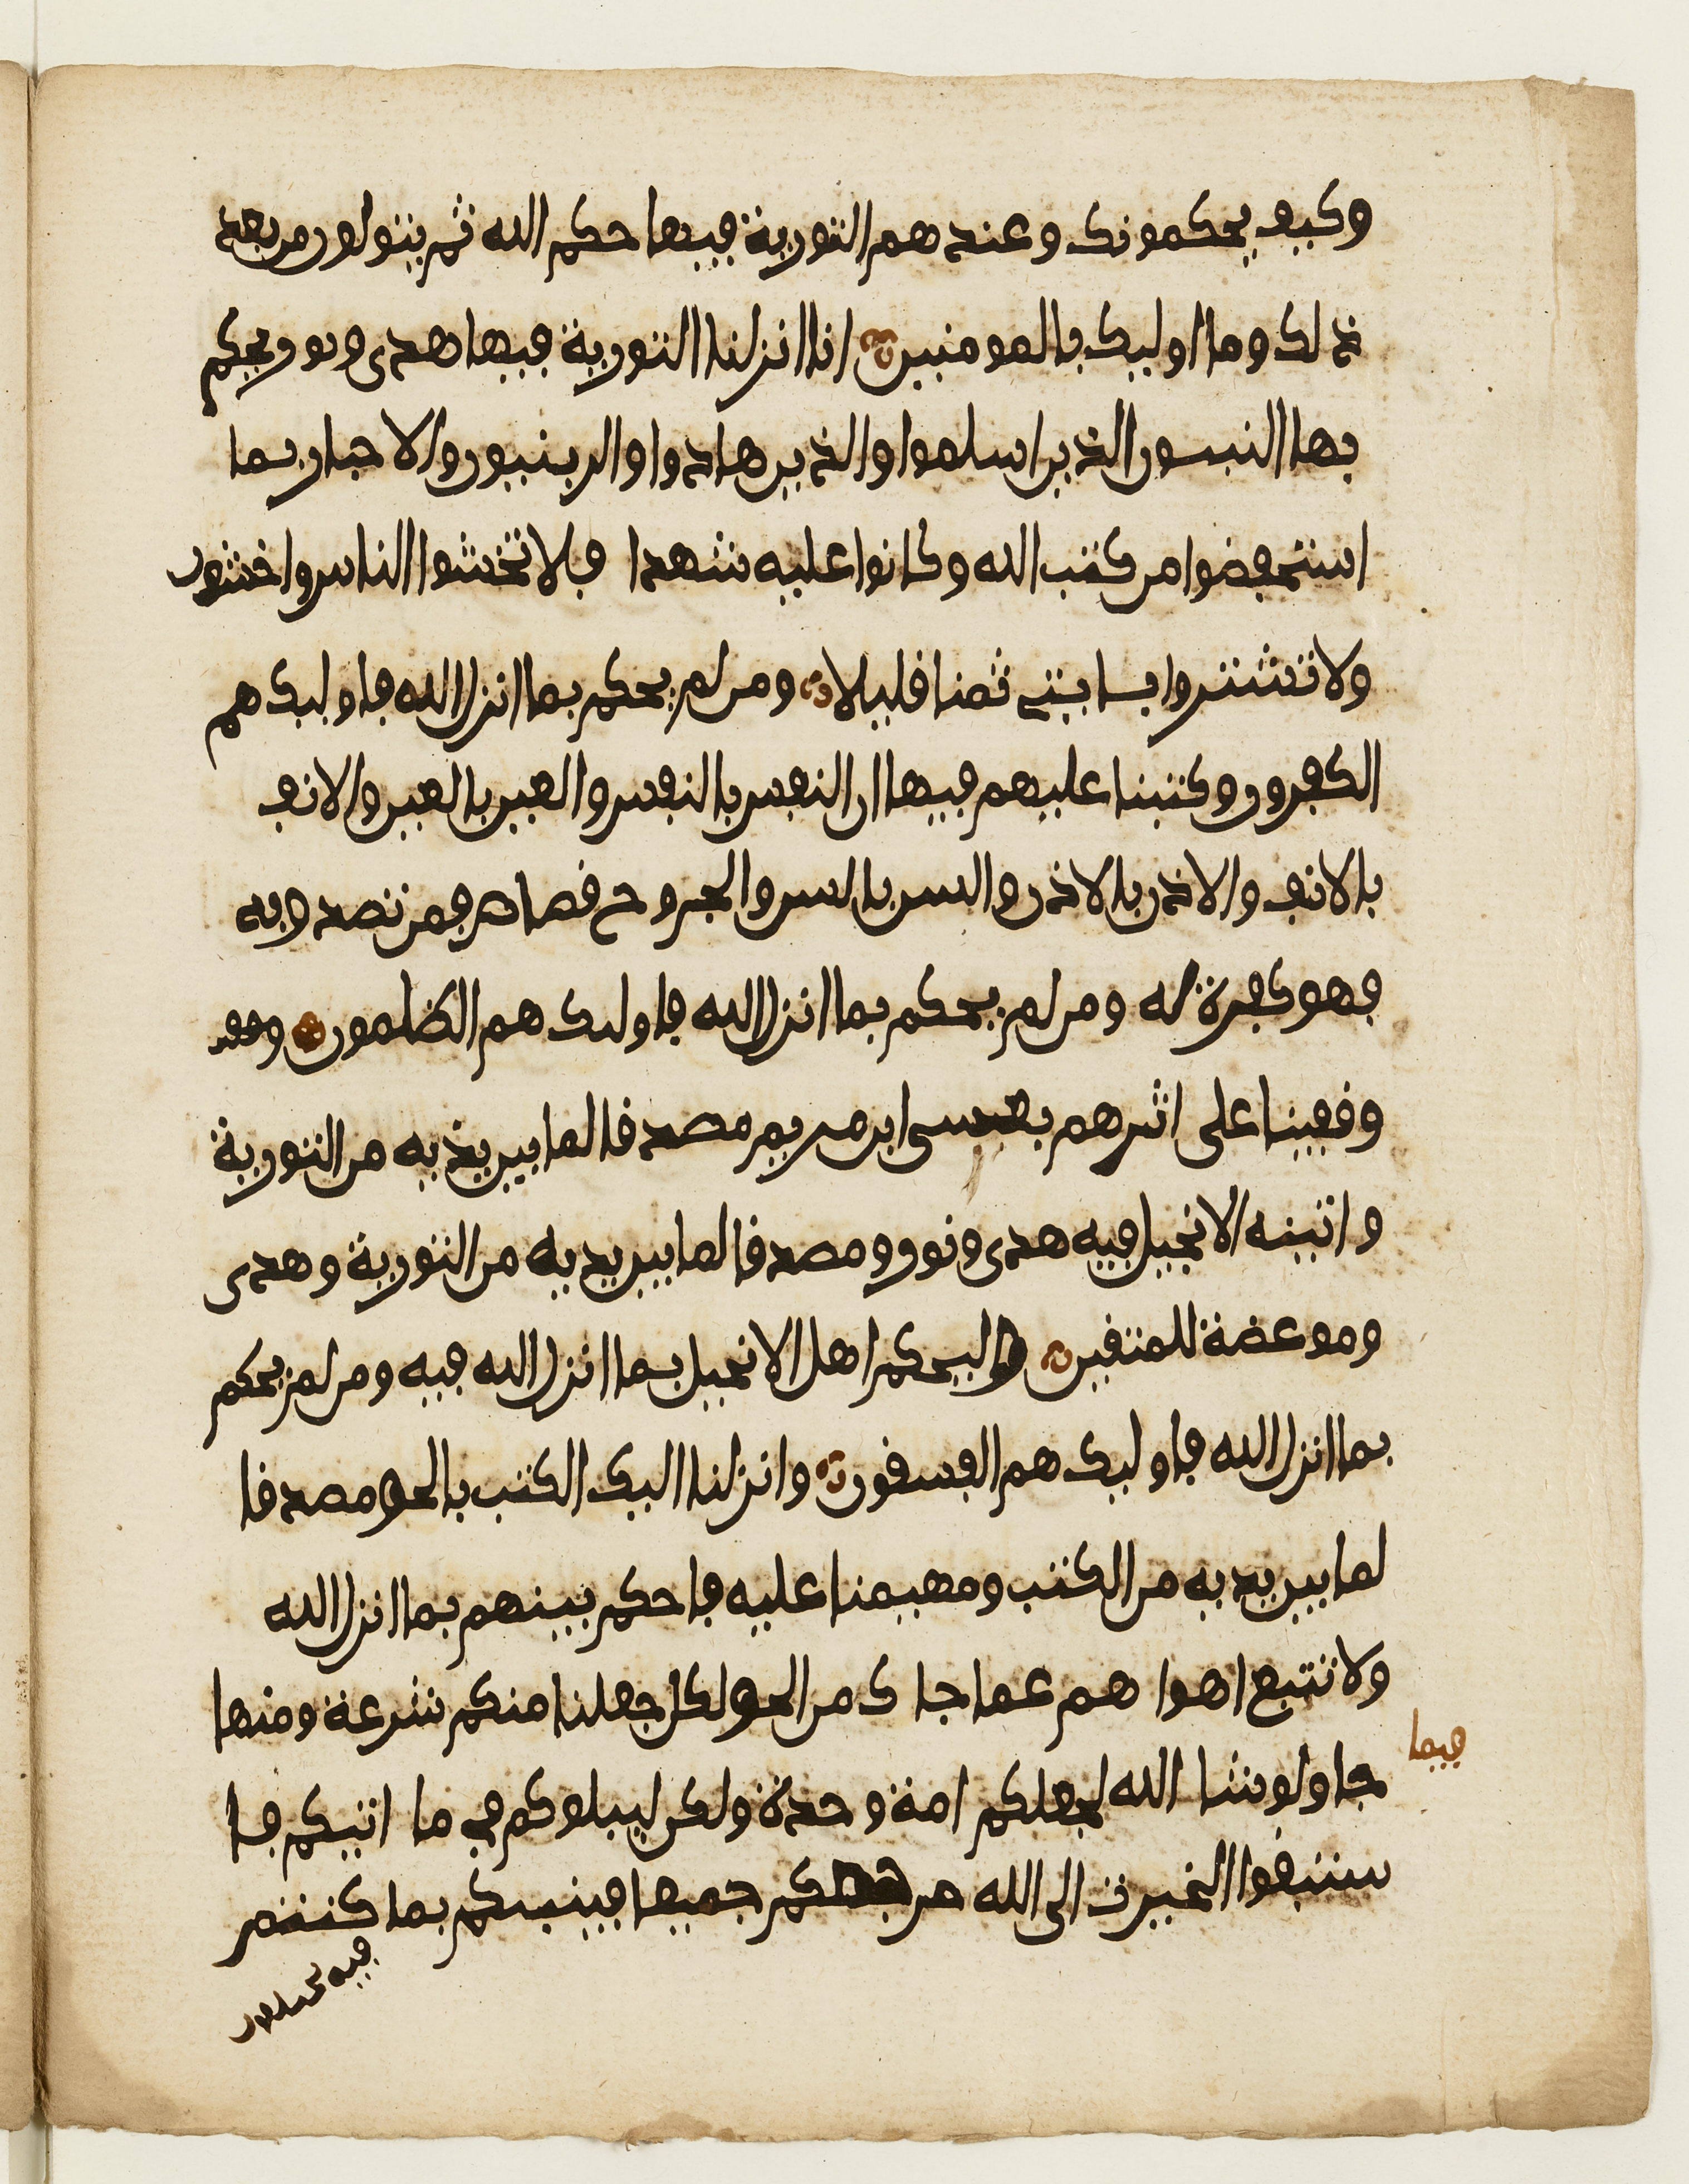 وكيف يحكمونك وعندهم التورية فيها حكم الله ثم يتولون من بعد
ذلك وما اوليك بالمومنين انا انزلنا التورية فيها هدى ونور يحكم
بها النبيون الذين اسلموا والذين هادوا والربنيون والاحبار بما
استحفضوا من كتب الله وكانوا عليه شهدا فلا تخشوا الناس واخشون
ولا تشتروا بايتي ثمنا قليلا ومن لم يحكم بما انزل الله فاوليك هم
الكفرون وكتبنا عليهم فيها ان النفس بالنفس والعين بالعين والانف
بالانف والاذن بالاذن والسن بالسن والجروح قصاص فمن تصدق به
فهو كفرة له ومن لم يحكم بما انزل الله فاوليك هم الظلمون وقف
وقفينا على اثرهم بعيسى ابن مريم مصدقا لما بين يديه من التورية
واتينه الانجيل فيه هدى ونور ومصدقا لما بين يديه من التورية وهدى
وموعضة للمتقين وليحكم اهل الانجيل بما انزل الله فيه ومن لم يحكم
بما انزل الله فاوليك هم الفسقون وانزلنا اليك الكتب بالحق مصدقا
لما بين يديه من الكتب ومهيمنا عليه فاحكم بينهم بما انزل الله
ولا تتبع اهوا هم عما جا ك من الحق لكل جعلنا منكم شرعة ومنها
جا ولو شا الله لجعلكم امة وحدة ولكن ليبلوكم في ما اتيكم فا
ستبقوا الخيرت الى الله مرجعكم جميعا فينبيكم بما كنتم
فيه تختلفون
فيما